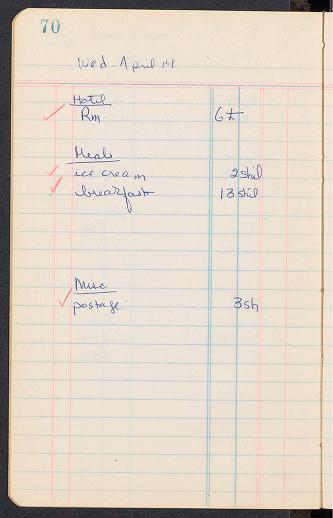 70
Wed - April 14
Hotel
Rm 6£
Meals
ice cream 2shil
breakfast 13shil
Misc
postage 3sh